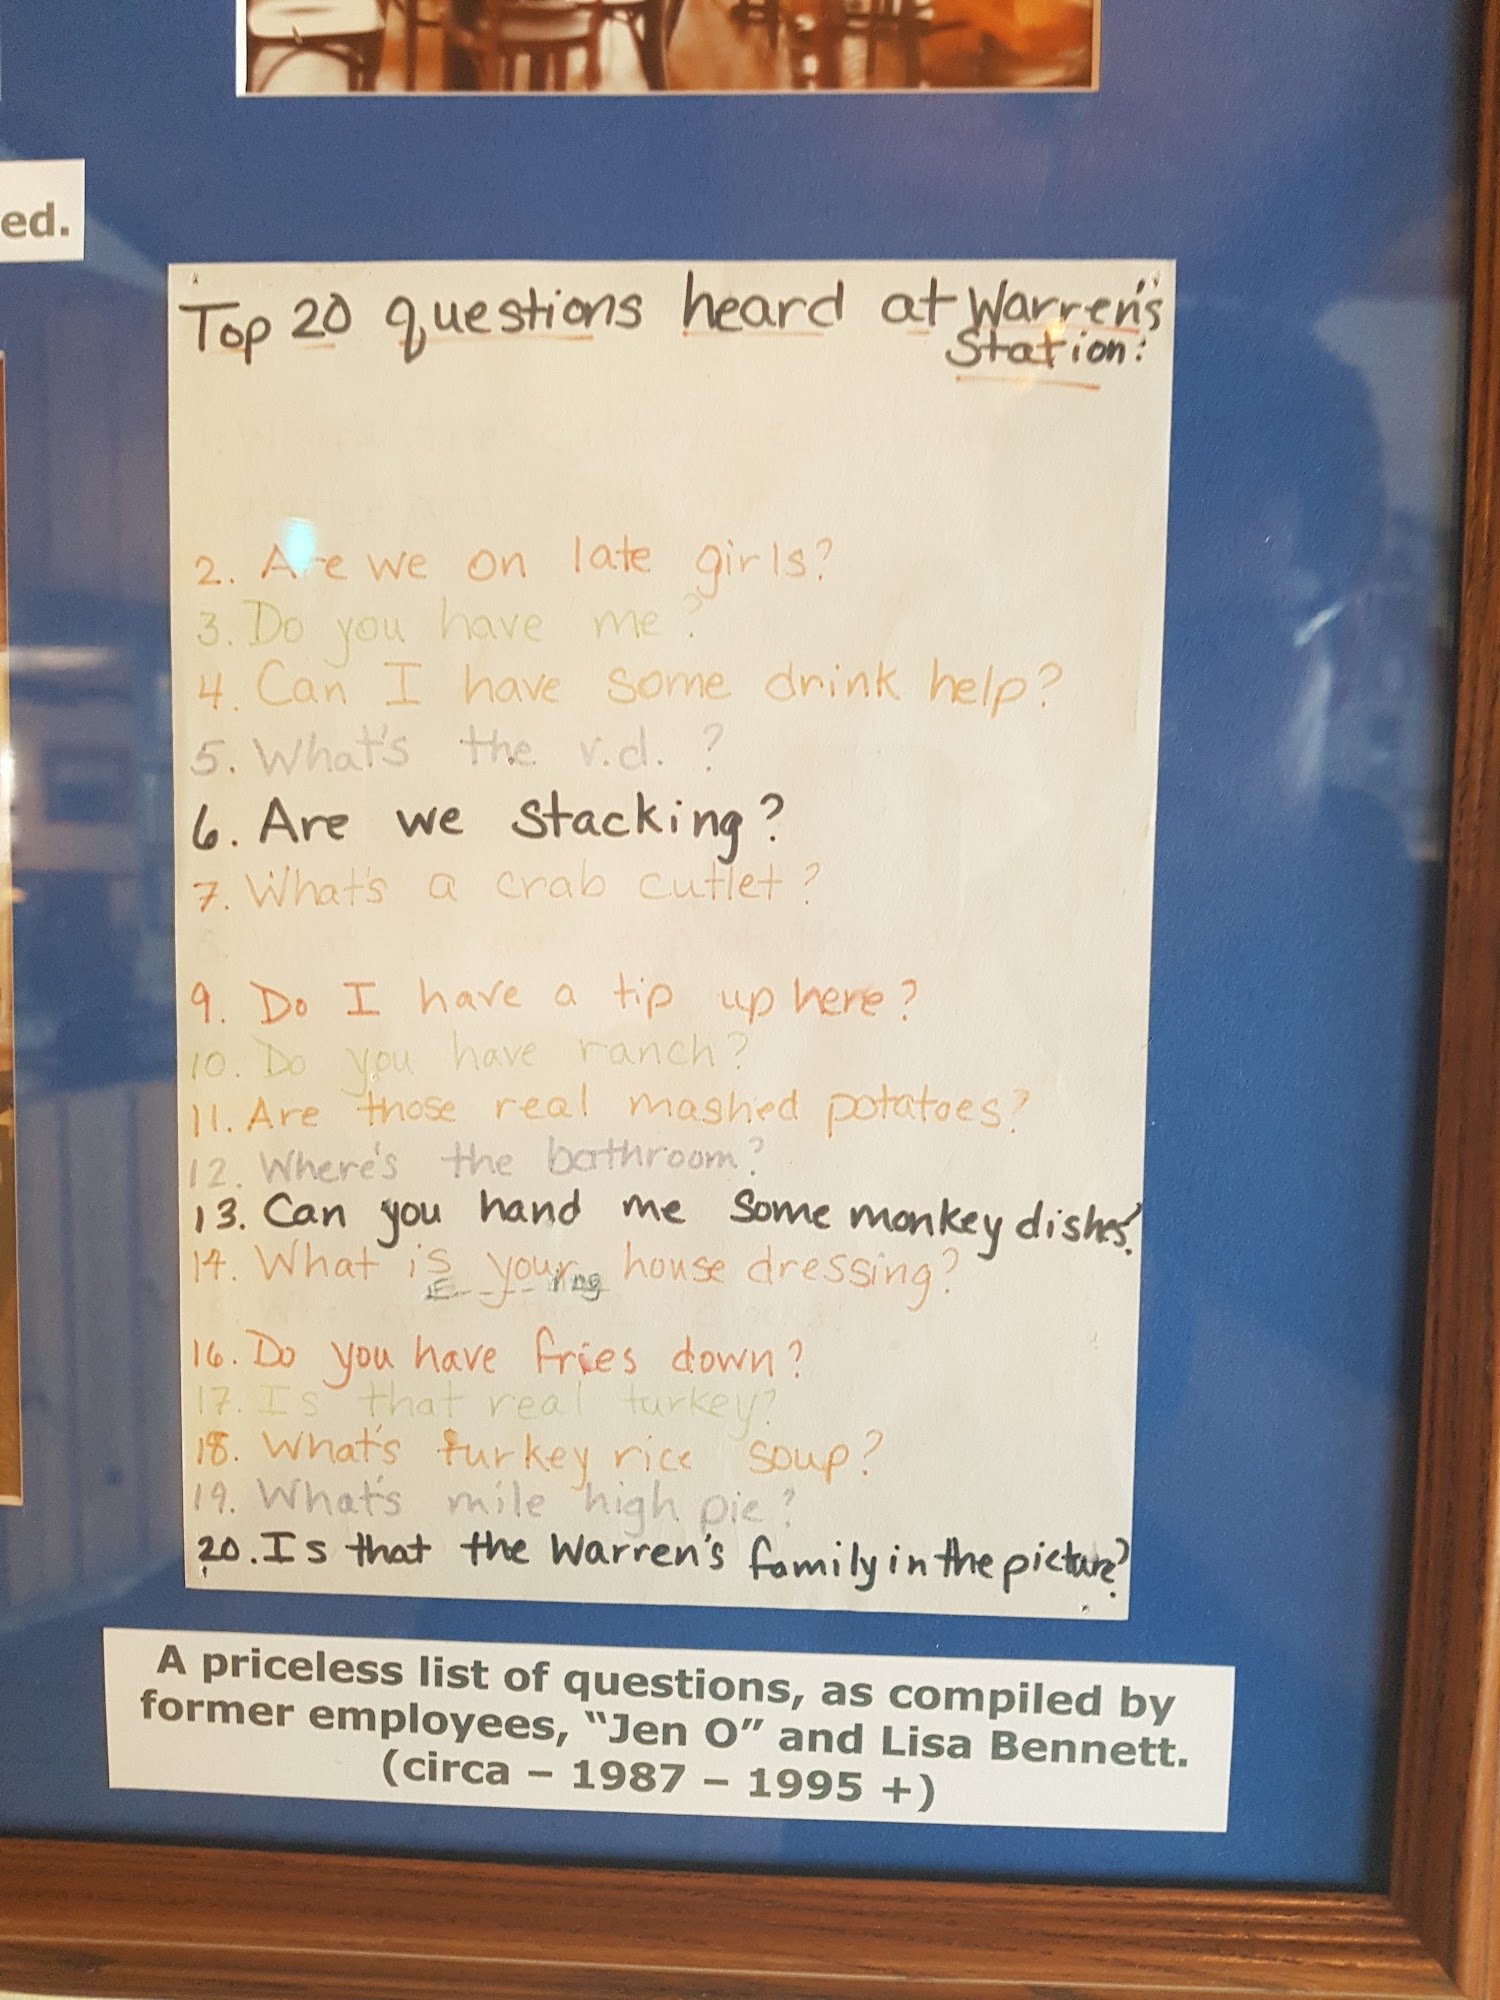 ed.
Top 20 questions heard at Warren's
Station:
2. Are we on late girls?
3. Do you have me?
4. Can I have some drink help?
5. What's the v.d.?
6. Are we stacking?
7. What's a crab cutlet?
9. Do I have a tip up here?
10. Do you have ranch?
11. Are those real mashed potatoes?
12. Where's the bathroom?
13. Can you hand me some monkey dishes?
14. What is your house dressing?
16. Do you have fries down?
17. Is that real turkey?
18. What's turkey rice soup?
19. What's mile high pie?
20. Is that the Warren's family in the picture?
A priceless list of questions, as compiled by
former employees, “Jen O” and Lisa Bennett.
(circa – 1987 – 1995 +)